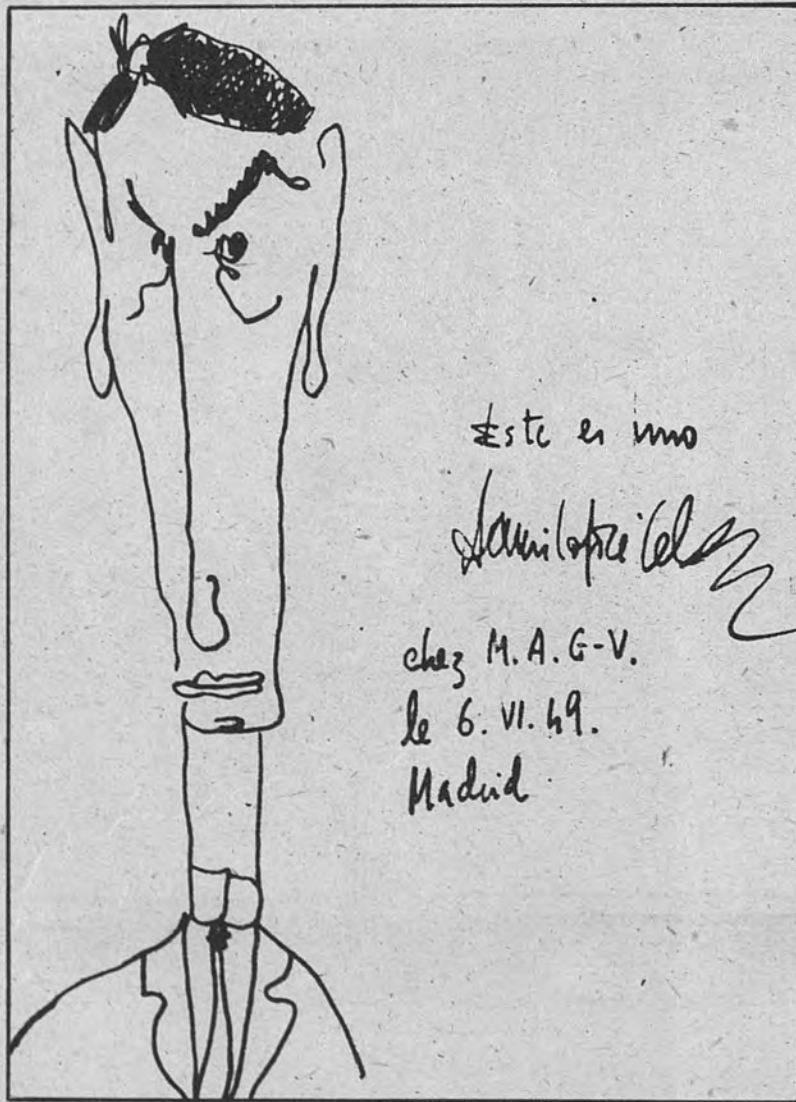 Este es uno
Camilo José Cela
chez M. A. G-V.
le 6. VI. 49.
Madrid